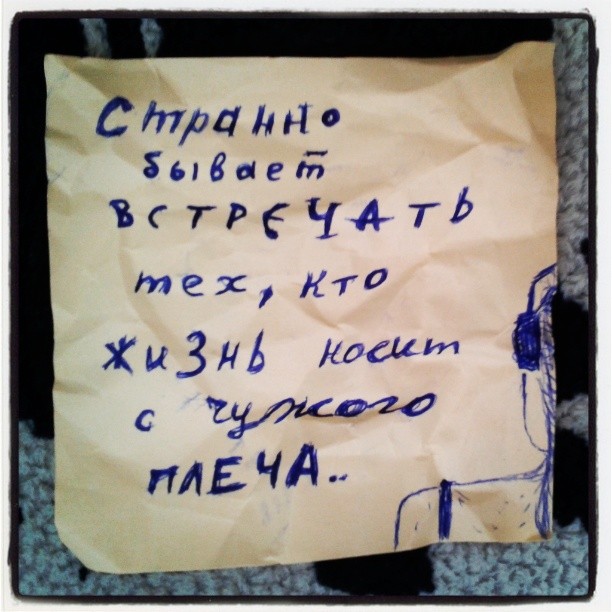 Странно
бывает
ВСТРЕЧАТЬ
тех, кто
жизнь носит
с чужого
ПЛЕЧА..